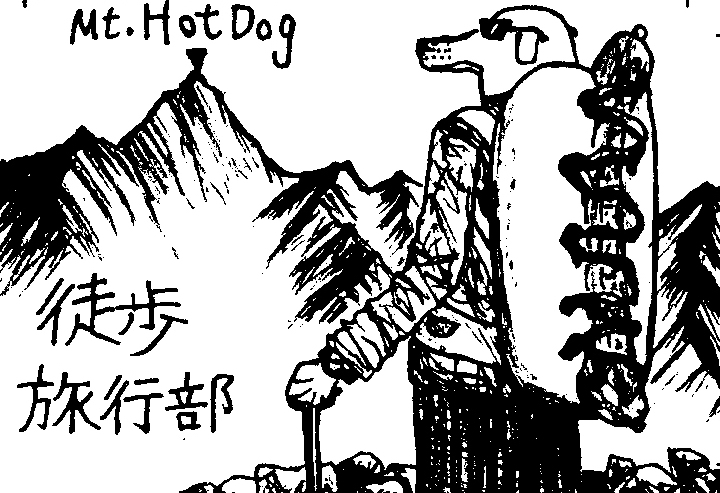 Mt. Hot Dog
徒歩
旅行部